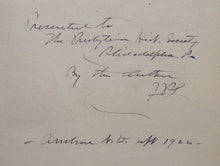 Presented to
The Presbyterian Hist. Society
Philadelphia, Pa
By the author
Sept 1926 -